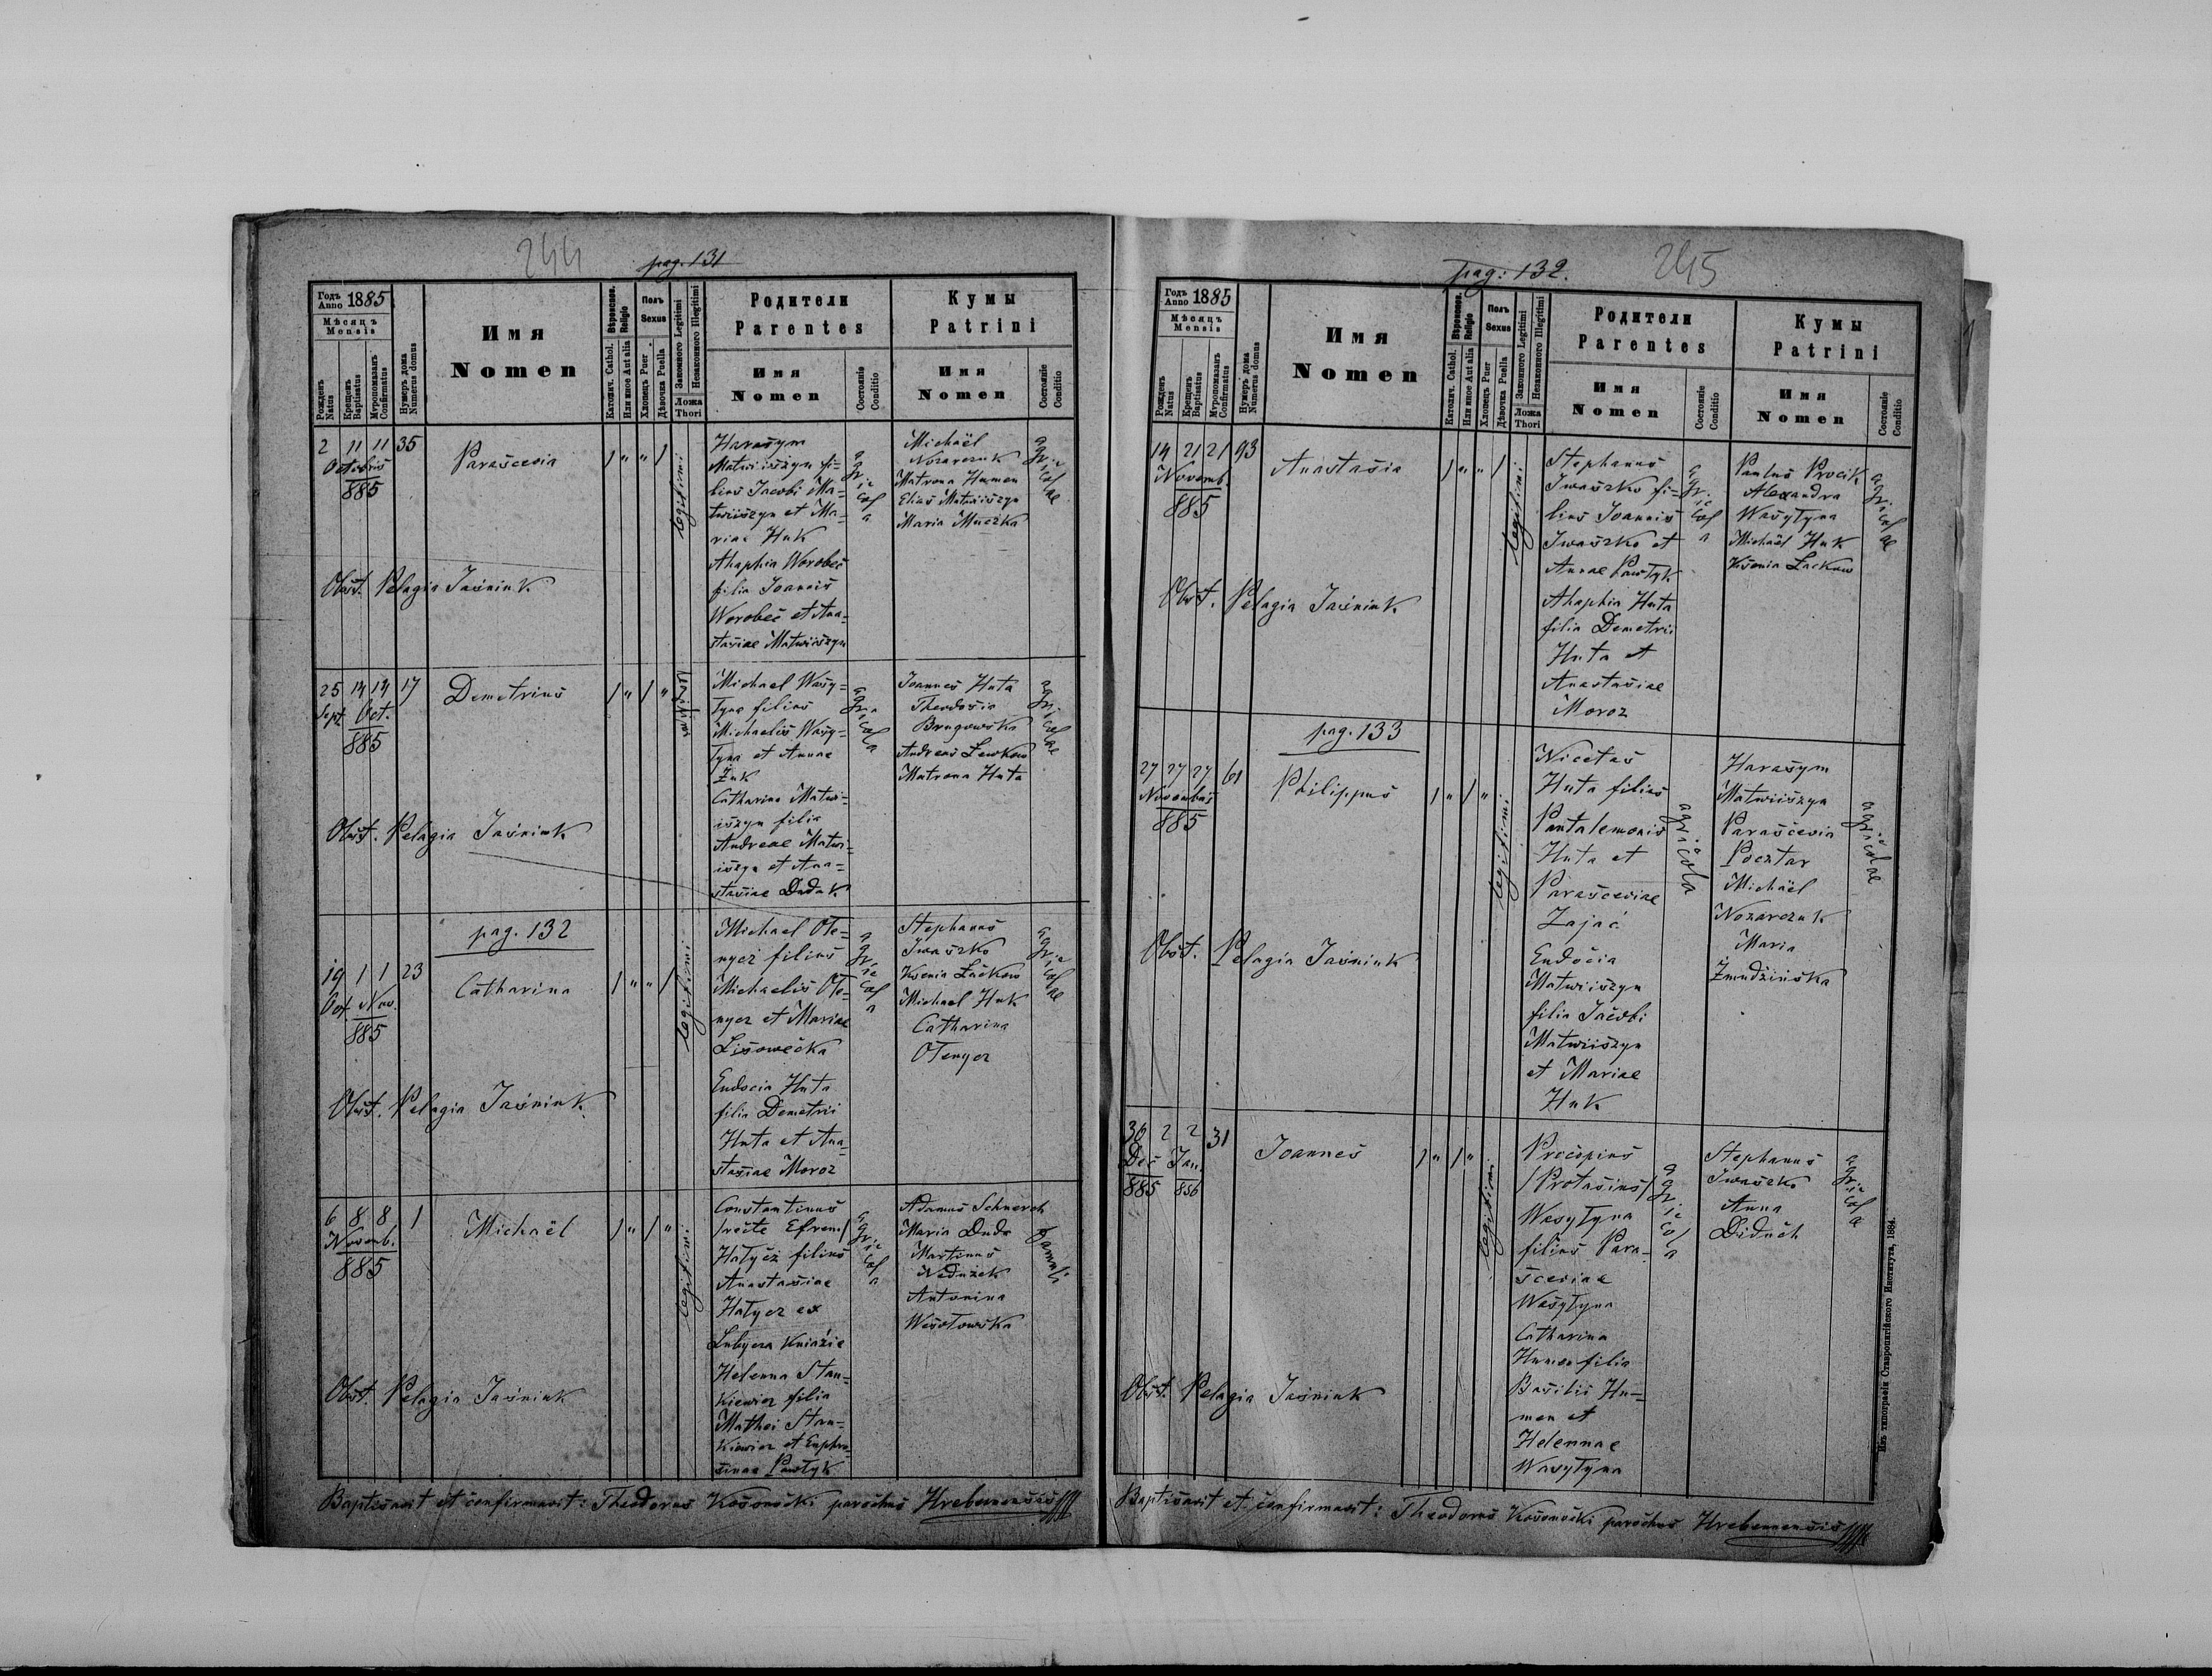 244
pag. 131
Годъ Anno 1885
Мѣсяцъ Mensis
Рожденъ Natus
Крещенъ Baptisatus
Мѵропомазанъ Confirmatus
Нумеръ дома Numerus domus
Имя
Nomen
Вѣроиспов. Religio
Католич. Cathol.
Или иное Aut alia
Полъ Sexus
Хлопецъ Puer
Дѣвочка Puella
Законного Legitimi
Незаконного Illegitimi
Ложа Thori
Родители
Parentes
Имя
Nomen
Состояніе Conditio
Кумы
Patrini
Имя
Nomen
Состояніе Conditio
2 11 11 35
Octobris
885
Parascevia
legitimi
Harasym
Matwiiszyn fi-
lius Jacobi Ma-
twiiszyn et Ma-
riae Huk
Ahaphia Worobec
filia Joannis
Worobec et Ana-
stasiae Matwiiszyn
agricola
Michaël
Nozarczuk
Matrona Humen
Elias Matwiiszyn
Maria Muczka
agricolae
Obst. Pelagia Jaśniuk
25 14 14 17
Sept. Oct.
885
Demetrius
legitimi
Michael Wasy-
łyna filius
Michaelis Wasy-
łyna et Annae
Żuk
Catharina Matwi-
iszyn filia
Andreae Matwi-
iszyn et Ana-
stasiae Dudak
agricola
Joannes Huta
Theodosia
Brugowska
Andreas Lewkow
Matrona Huta
agricolae
Obst. Pelagia Jaśniuk
pag. 132
19 1 1 23
Oct. Nov.
885
Catharina
legitimi
Michael Ołe-
nycz filius
Michaelis Ołe-
nycz et Mariae
Lisowećka
Eudocia Huta
filia Demetrii
Huta et Ana-
stasiae Moroz
agricola
Stephanus
Iwaszko
Ksenia Łackow
Michael Huk
Catharina
Ołenycz
agricolae
Obst. Pelagia Jaśniuk
6 8 8 1
Novemb.
885
Michaël
legitimi
Constantinus
/recte Efrem/
Hałycz filius
Anastasiae
Hałycz ex
Lubycza Kniazie
Helenna Stan-
kiewicz filia
Mathei Stan-
kiewicz et Euphro-
sinae Pawłyk
agricola
Adamus Schnerch
Maria Duda
Martinus
Nedużek
Antonina
Wesołowska
famuli
Obst. Pelagia Jaśniuk
Baptisavit et confirmavit: Theodorus Kosonocki parochus Hrebennensis
245
pag: 132.
Годъ Anno 1885
Мѣсяцъ Mensis
Рожденъ Natus
Крещенъ Baptisatus
Мѵропомазанъ Confirmatus
Нумеръ дома Numerus domus
Имя
Nomen
Вѣроиспов. Religio
Католич. Cathol.
Или иное Aut alia
Полъ Sexus
Хлопецъ Puer
Дѣвочка Puella
Законного Legitimi
Незаконного Illegitimi
Ложа Thori
Родители
Parentes
Имя
Nomen
Состояніе Conditio
Кумы
Patrini
Имя
Nomen
Состояніе Conditio
14 21 21 93
Novemb.
885
Anastasia
legitimi
Stephanus
Iwaszko fi-
lius Joannis
Iwaszko et
Annae Pawłyk
Ahaphia Huta
filia Demetrii
Huta et
Anastasiae
Moroz
agricola
Paulus Procik
Alexandra
Wasyłyna
Michaël Huk
Ksenia Lackow
agricolae
Obst. Pelagia Jaśniuk
pag. 133
27 27 27 61
Novembris
885
Philippus
legitimi
Nicetas
Huta filius
Pantalemonis
Huta et
Parasceviae
Zająć
Eudocia
Matwiiszyn
filia Jacobi
Matwiiszyn
et Mariae
Huk
agricola
Harasym
Matwiiszyn
Parascevia
Pocztar
Michaël
Nozarczuk
Maria
Żmudzińska
agricolae
Obst. Pelagia Jaśniuk
30 2 2 31
Dec Jan.
885 886
Joannes
legitimi
Procopius
/Protasius/
Wasyłyna
filius Para-
sceviae
Wasyłyna
Catharina
Humen filia
Basilii Hu-
men et
Helennae
Wasyłyna
agricola
Stephanus
Iwaszko
Anna
Diduch
agricola
Obst. Pelagia Jaśniuk
Baptisavit et confirmavit: Theodorus Kosonocki parochus Hrebennensis
Изъ типографіи Ставропигійского Института, 1884.